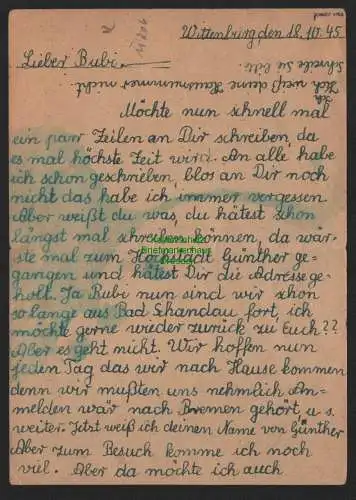 Wittenburg, den 18.10.45
Lieber Bubi.
Ich weiß deine Hausnummer nicht.
Schreibe Sie bitte.
Möchte nun schnell mal
ein paar Zeilen an Dir schreiben, da
es mal höchste Zeit wird. An alle habe
ich schon geschrieben, blos an Dir noch
nicht das habe ich immer vergessen.
Aber weißt du was, du hätest schon
längst mal schreiben können, da wär-
ste mal zum Hochstädt Günther ge-
gangen und hätest Dir die Adresse ge-
holt. Ja Bubi nun sind wir schon
so lange aus Bad Schandau fort, ich
möchte gerne wieder zurück zu Euch??
Aber es geht nicht. Wir hoffen nun
jeden Tag das wir nach Hause kommen
denn wir mußten uns nehmlich An-
melden wär nach Bremen gehört, u. s.
weiter. Jetzt weiß ich deinen Name von Günther
Aber zum Besuch komme ich noch
viel. Aber da möchte ich auch